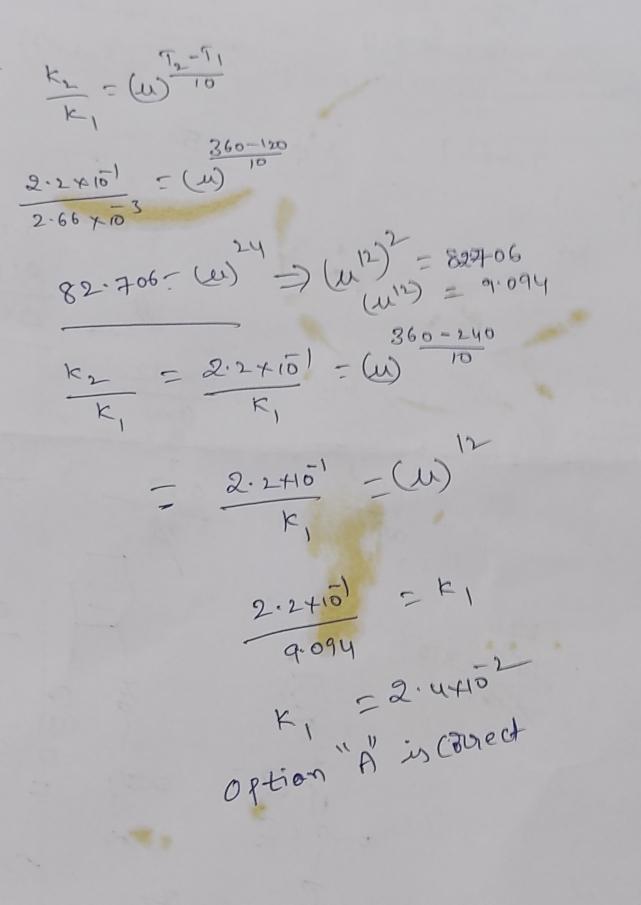 K₂/K₁ = (μ)^((T₂-T₁)/10)
(2.2×10⁻¹)/(2.66×10⁻³) = (μ)^((360-120)/10)
82.706 = (μ)²⁴ ⇒ (μ¹²)² = 82706
(μ¹²) = 9.094
K₂/K₁ = (2.2×10⁻¹)/K₁ = (μ)^((360-240)/10)
= (2.2×10⁻¹)/K₁ = (μ)¹²
(2.2×10⁻¹)/9.094 = K₁
K₁ = 2.4×10⁻²
Option "A" is Correct